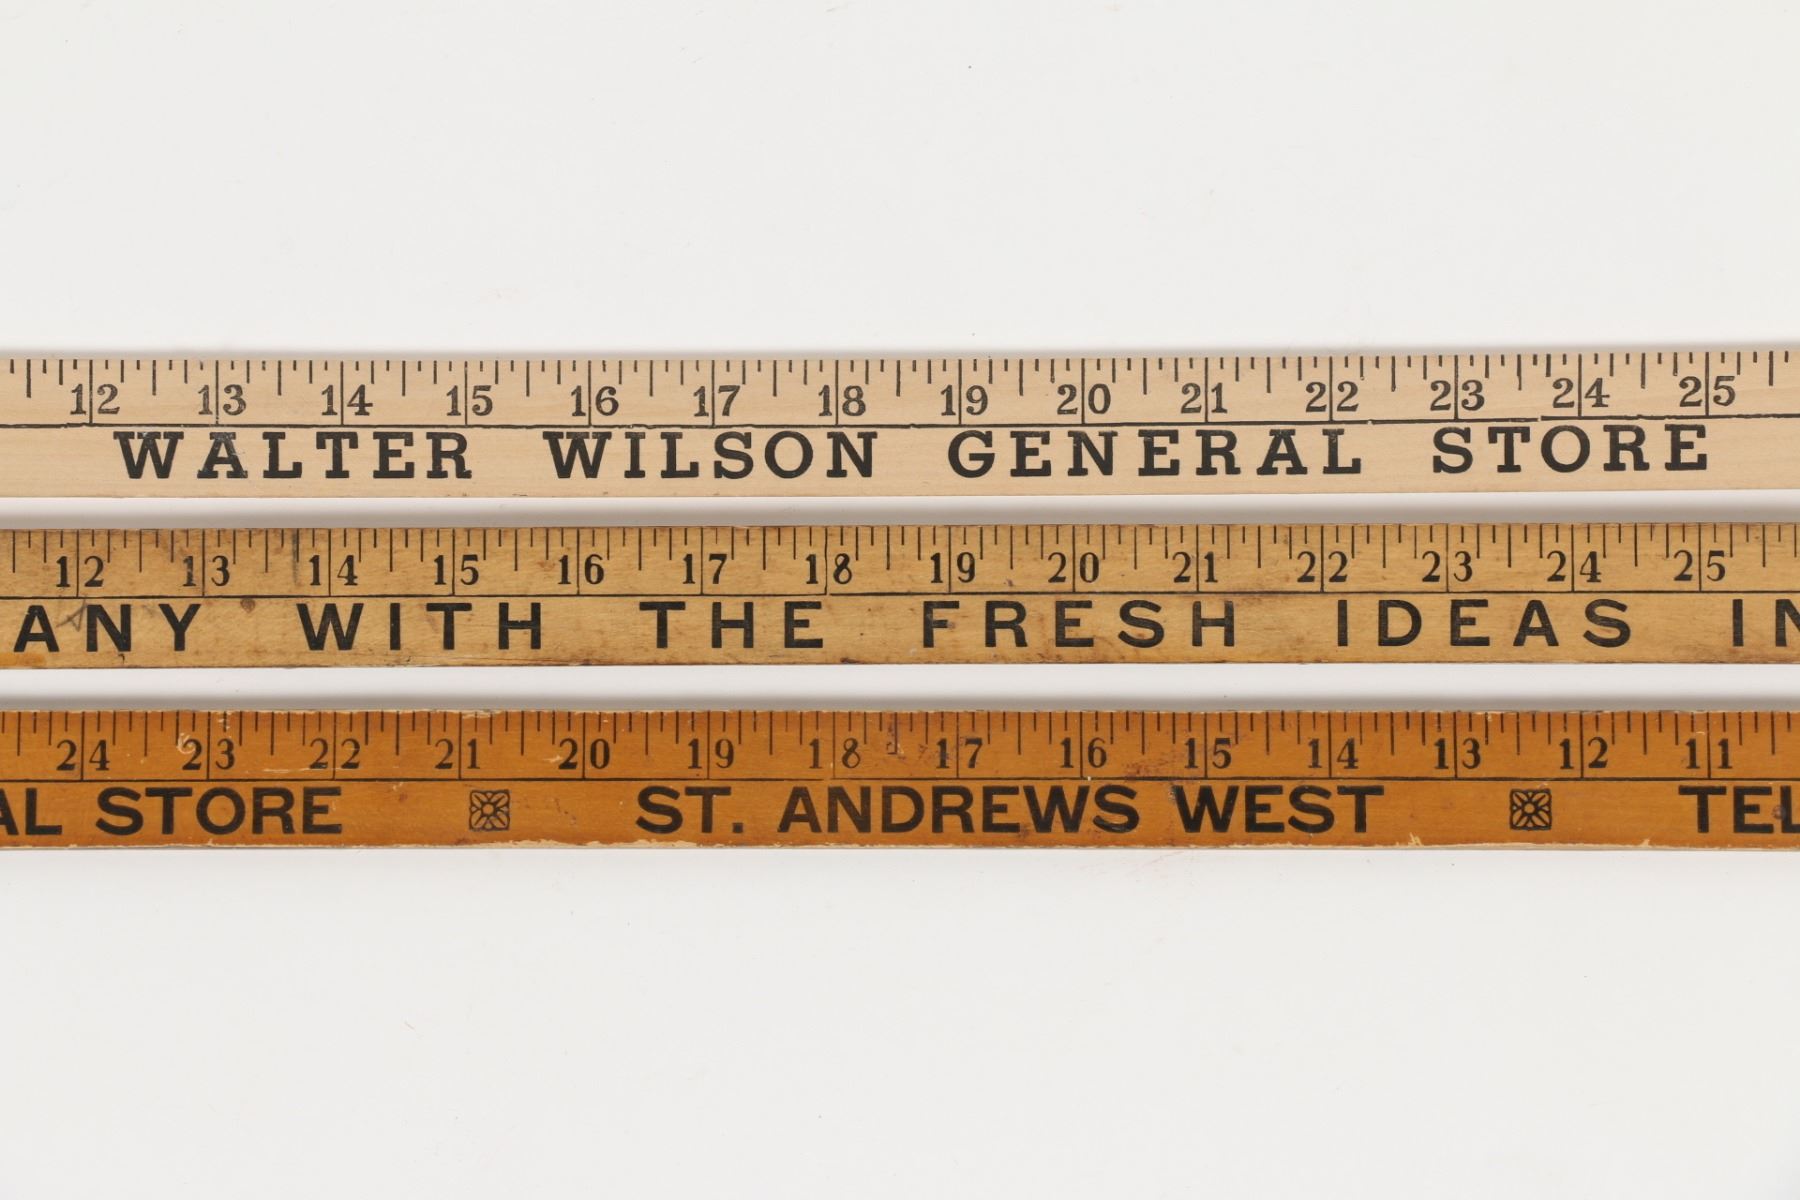 12 13 14 15 16 17 18 19 20 21 22 23 24 25
WALTER WILSON GENERAL STORE
12 13 14 15 16 17 18 19 20 21 22 23 24 25
ANY WITH THE FRESH IDEAS IN
24 23 22 21 20 19 18 17 16 15 14 13 12 11
AL STORE ST. ANDREWS WEST TEL